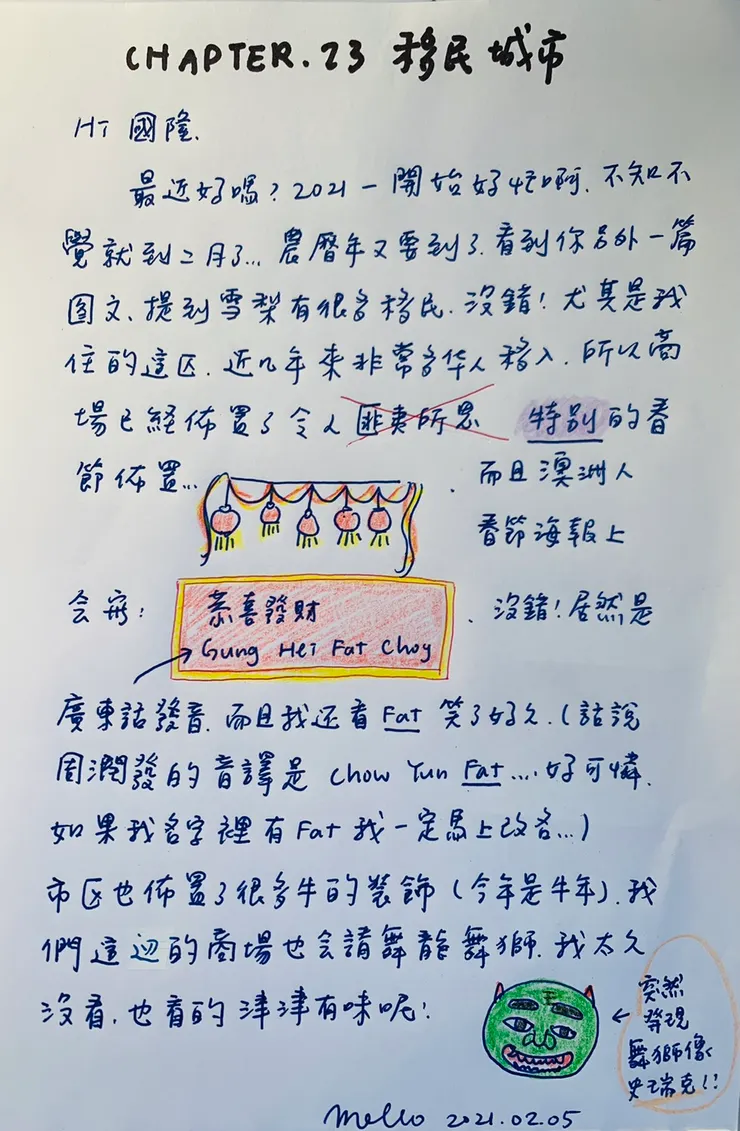 CHAPTER.23 移民城市
Hi 國隆.
最近好嗎? 2021一開始好忙啊. 不知不
覺就到二月了... 農曆年又要到了. 看到你另外一篇
圖文、提到雪梨有很多移民. 沒錯! 尤其是我
住的這区. 近几年來非常多华人移入. 所以商
場已経佈置了令人匪夷所思 特别的春
節佈置...
. 而且澳洲人
春節海報上
会寫:
恭喜發財
Gung Hei Fat Choy
. 沒錯! 居然是
廣東話發音. 而且我还看Fat笑了好久. (話說
周潤發的音譯是 Chow Yun Fat .... 好可憐.
如果我名字裡有Fat我一定馬上改名...)
市区也佈置了很多牛的裝飾 (今年是牛年). 我
們這边的商場也会請舞龍舞獅. 我太久
沒看. 也看的津津有味呢!
王
← 突然
發現
舞獅像
史瑞克!!
Mello 2021.02.05